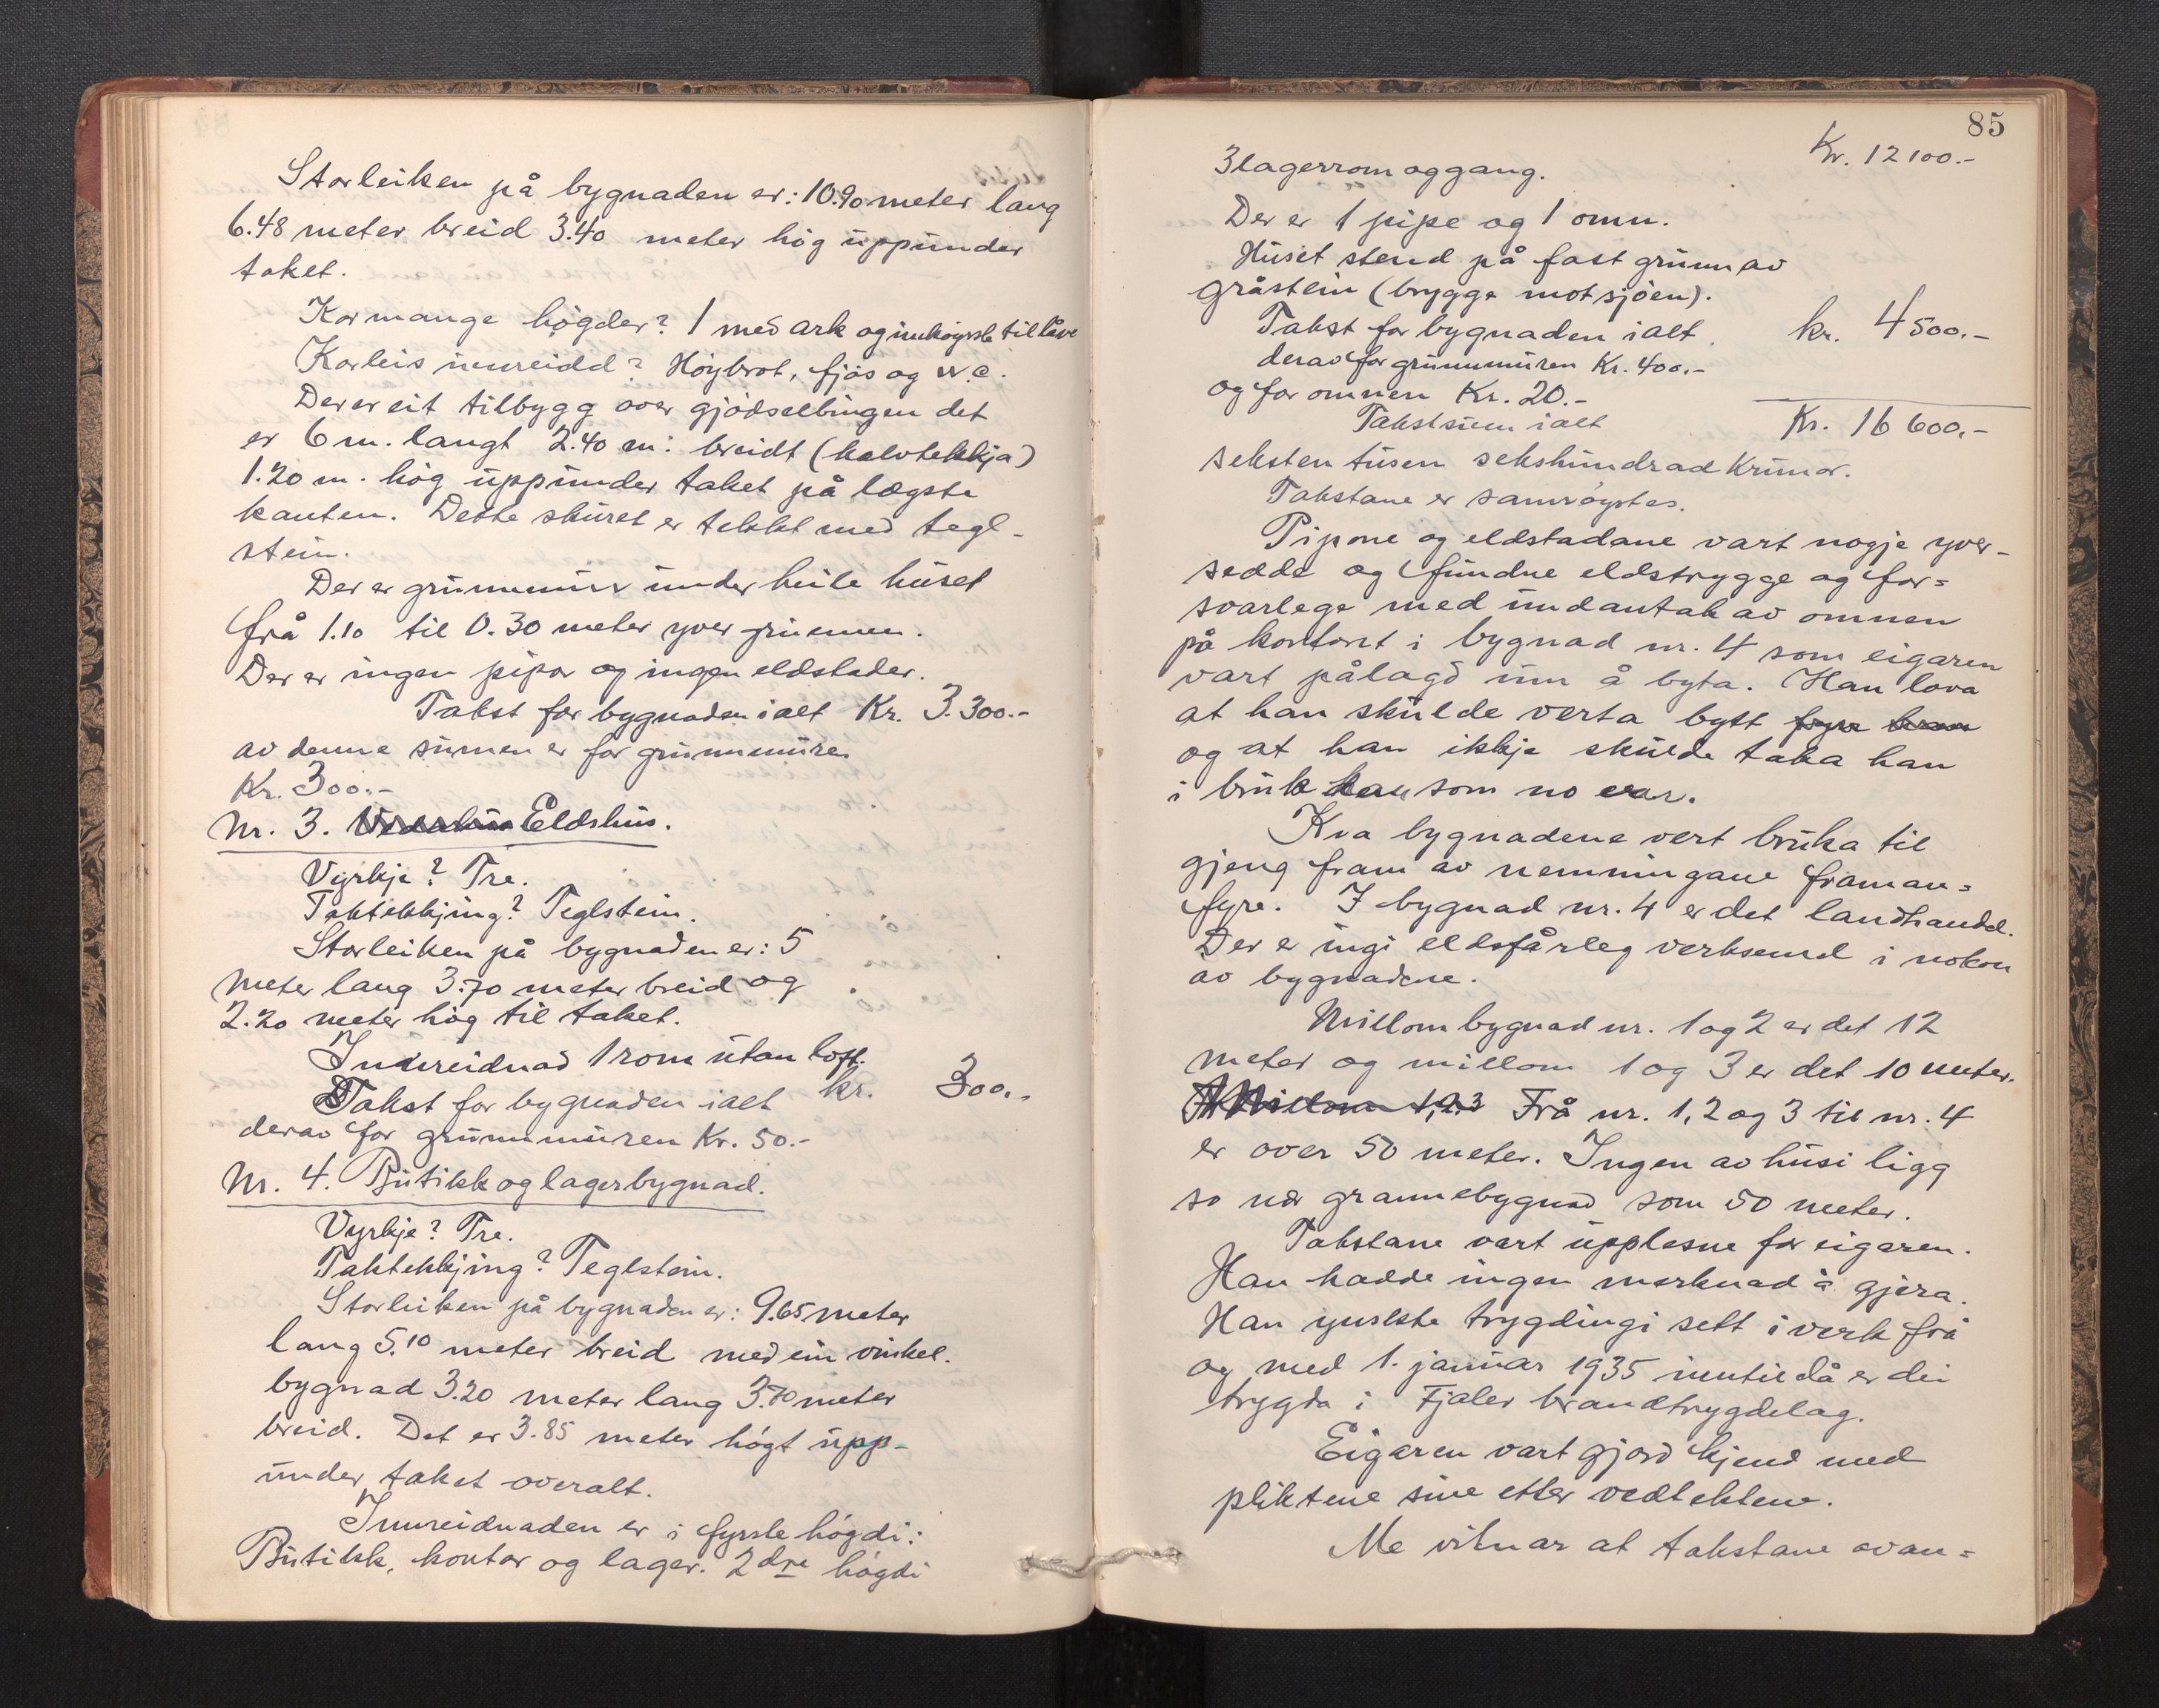 Storleiken på bygnaden er: 10.90 meter lang
6.48 meter breid 3.40 meter høg uppunder
taket.
Kor mange høgder? 1 med ark og innkøyrsle til låve
Korleis innreidd? Høybrot, fjøs og w.c.
Der er eit tilbygg over gjødselbingen det
er 6 m. langt 2.40 m. breidt (halvtekkja)
1.20 m. høg uppunder taket på lægste
kanten. Dette skuret er tekkt med tegl-
stein.
Der er grunnmur under heile huset
frå 1.10 til 0.30 meter yver grunnen.
Der er ingen pipa og ingen eldstader.
Takst for bygnaden ialt Kr. 3.300.-
av denne sumen er for grunnmuren
Kr. 300.-
Nr. 3. Eldshus.
Vyrkje? Tre.
Taktekkjing? Teglstein.
Storleiken på bygnaden er: 5
meter lang 3.70 meter breid og
2.20 meter høg til taket.
Innreidnad 1 rom utan loft.
Takst for bygnaden ialt kr. 300.-
derav for grunnmuren Kr. 50.-
Nr. 4. Butikk og lagerbygnad.
Vyrkje? Tre.
Taktekkjing? Teglstein.
Storleiken på bygnaden er: 9.65 meter
lang 5.10 meter breid med ein vinkel-
bygnad 3.20 meter lang 3.70 meter
breid. Det er 3.85 meter høgt upp-
under taket overalt.
Innreidnaden er i fyrste høgdi:
Butikk, kontor og lager. 2dre høgdi
85
Kr. 12100.-
3 lagerrom og gang.
Der er 1 pipe og 1 omn.
Huset stend på fast grunn av
gråstein (brygge mot sjøen).
Takst for bygnaden ialt kr. 4500.-
derav for grunnmuren Kr. 400.-
og for omnen Kr. 20.-
Takstsum ialt Kr. 16600.-
seksten tusen sekshundrad Krunor.
Takstane er samrøystes.
Pipone og eldstadane vart nøgje yver-
sedde og fundne eldstrygge og for-
svarlege med undantak av omnen
på kontoret i bygnad nr. 4 som eigaren
vart pålagd um å byta. Han lova
at han skulde verta bytt fyre han
og at han ikkje skulde taka han
i bruk han som no var.
Kva bygnadene vert bruka til
gjeng fram av nemningane framan-
fyre. I bygnad nr. 4 er det landhandel.
Der er ingi eldsfårleg verksemd i nokon
av bygnadene.
Millom bygnad nr. 1 og 2 er det 12
meter og millom 1 og 3 er det 10 meter.
Millom 1,2,3 Frå nr. 1, 2 og 3 til nr. 4
er over 50 meter. Ingen av husi ligg
so nær grannebygnad som 50 meter.
Takstane vart upplesne for eigaren.
Han hadde ingen merknad å gjera.
Han ynskte trygdingi sett i verk frå
og med 1. januar 1935 inntil då er dei
trygda i Fjaler brandtrygdelag.
Eigaren vart gjord kjend med
pliktene sine etter vedtektene.
Me vitnar at takstane ovan-